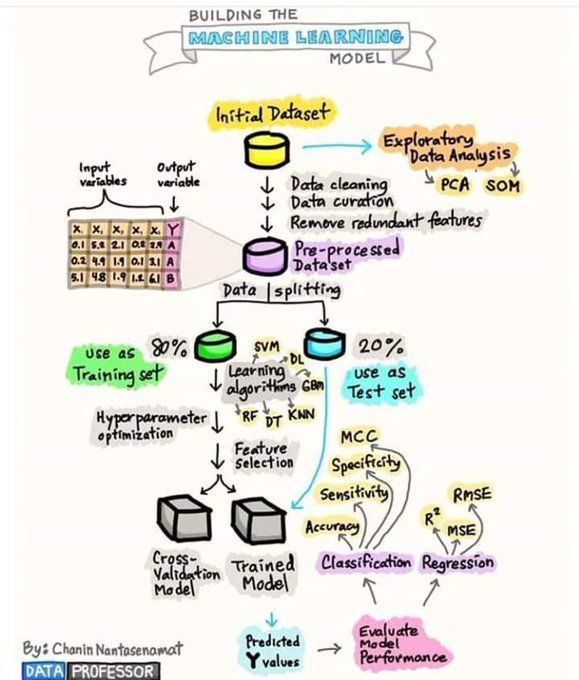 BUILDING THE
MACHINE LEARNING
MODEL
Initial Dataset
Exploratory
Data Analysis
PCA SOM
Input
variables
Output
variable
Data cleaning
Data curation
Remove redundant features
X, X, X, X, X, Y
0.1 5.2 2.1 0.2 2.9 A
0.2 4.9 1.9 0.1 2.1 A
5.1 4.8 1.9 1.2 6.1 B
Pre-processed
Dataset
Data splitting
80%
20%
use as
Training set
use as
Test set
SVM
DL
Learning
algorithms
GBM
RF DT KNN
Hyperparameter
optimization
Feature
Selection
MCC
Specificity
Sensitivity
Accuracy
RMSE
R²
MSE
Classification
Regression
Cross-
Validation
Model
Trained
Model
Predicted
Y values
Evaluate
Model
Performance
By: Chanin Nantasenamat
DATA PROFESSOR